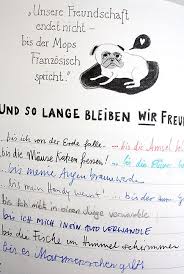 „Unsere Freundschaft
endet nicht –
bis der Mops
Französisch
spricht."
UND SO LANGE BLEIBEN WIR FREU
... bis ich von der Erde falle. ... bis die Ameise
bis die Mäuse Katzen fressen! ... bis die
... bis meine Augen braun werde
... bis mein Handy weint! ... bis der
bis ich mich in einen Junge verwandle
bis ICH MICH IN EIN AUTO VERWANDLE
bis die Fische im Himmel schwimmen
bis es Marmor